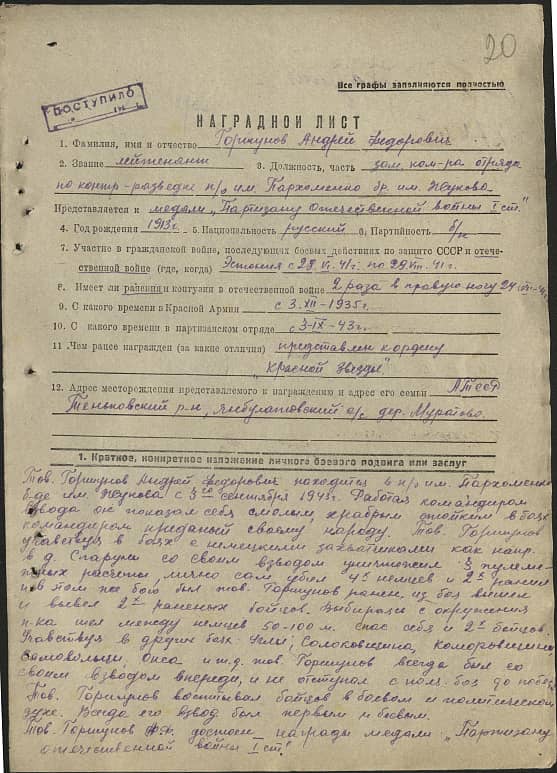 20
Все графы заполняются полностью
ПОСТУПИЛО
НАГРАДНОЙ ЛИСТ
1. Фамилия, имя и отчество Горшунов Андрей Федорович
2. Звание лейтенант 3. Должность, часть зам. ком-ра отряда
по контр-разведке п/о им. Пархоменко бр. им. Жукова
Представляется к медали „Партизану Отечественной войны I ст."
4. Год рождения 1913г. 5. Национальность русский 6. Партийность б/п
7. Участие в гражданской войне, последующих боевых действиях по защите СССР и отече-
ственной войне (где, когда) Эстония с 28 41г. по 41г.
8. Имеет ли ранения и контузии в отечественной войне 2 раза в правую ногу 24
9. С какого времени в Красной Армии с 3.XII-1935г.
10. С какого времени в партизанском отряде с 3-IX-43г.
11 Чем ранее награжден (за какие отличия) представлен к ордену
„Красной Звезды"
12. Адрес месторождения представляемого к награждению и адрес его семьи АТССР
Теньковский р-н, с/с дер.
1. Краткое, конкретное изложение личного боевого подвига или заслуг
Тов. Горшунов Андрей Федорович находится в п/о им. Пархоменко
б-де им. Жукова с 3го сентября 1943г. Работая командиром
взвода он показал себя смелым, храбрым стойким в боях
командиром преданый своему народу. Тов. Горшунов
учавствуя в боях с немецкими захватчиками как напр.
в д. со своим взводом уничтожил 3 пулеме-
тных расчета, лично сам убил 4х немцев и 2х ранил
в том же бою был тов. Горшунов ранен, из боя вышел
и вывел 2х раненых бойцов. Выбираясь с окружения
п-ка шел между немцев 50-100 м. спас себя и 2х бойцов.
Учавствуя в других боях: Соколовщина,
и т.д. тов. Горшунов всегда был со
своим взводом впереди, и не отступал с поля боя до победы
Тов. Горшунов воспитывал бойцов в боевом и политическом
духе. Всегда его взвод был первым и боевым.
Тов. Горшунов достоен награды медали „Партизану
отечественной войны I ст."